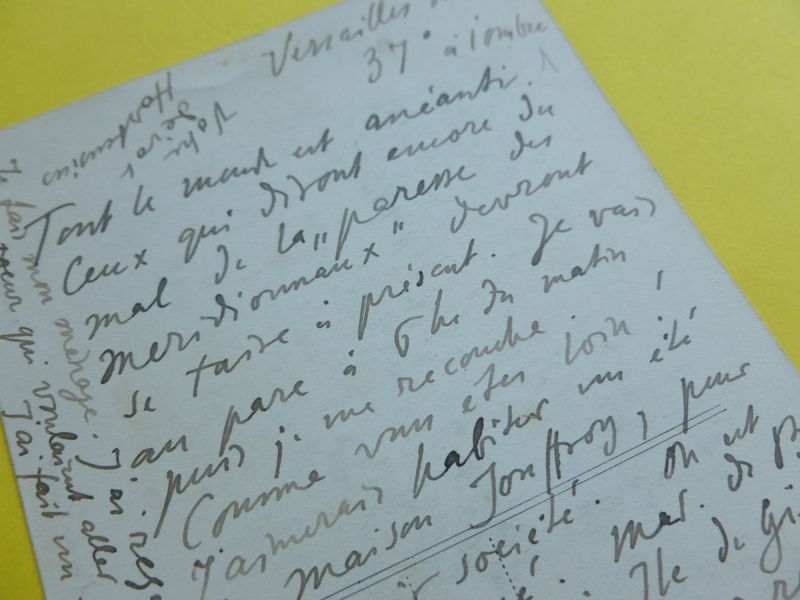 Versailles
37° à l'ombre
Tout le monde est anéanti.
Ceux qui diront encore du
mal de la "paresse des
meridionnaux" devront
se taire à présent. Je vais
au parc à 6 h du matin
puis je me recouche.
Comme vous êtes loin !
J'aimerais habiter un été
maison Jouffroy, pour
société. On est
Mad. de
Ile de Gi
votre
Je fais mon ménage. J'ai
soeur qui voulaient aller
J'ai fait un